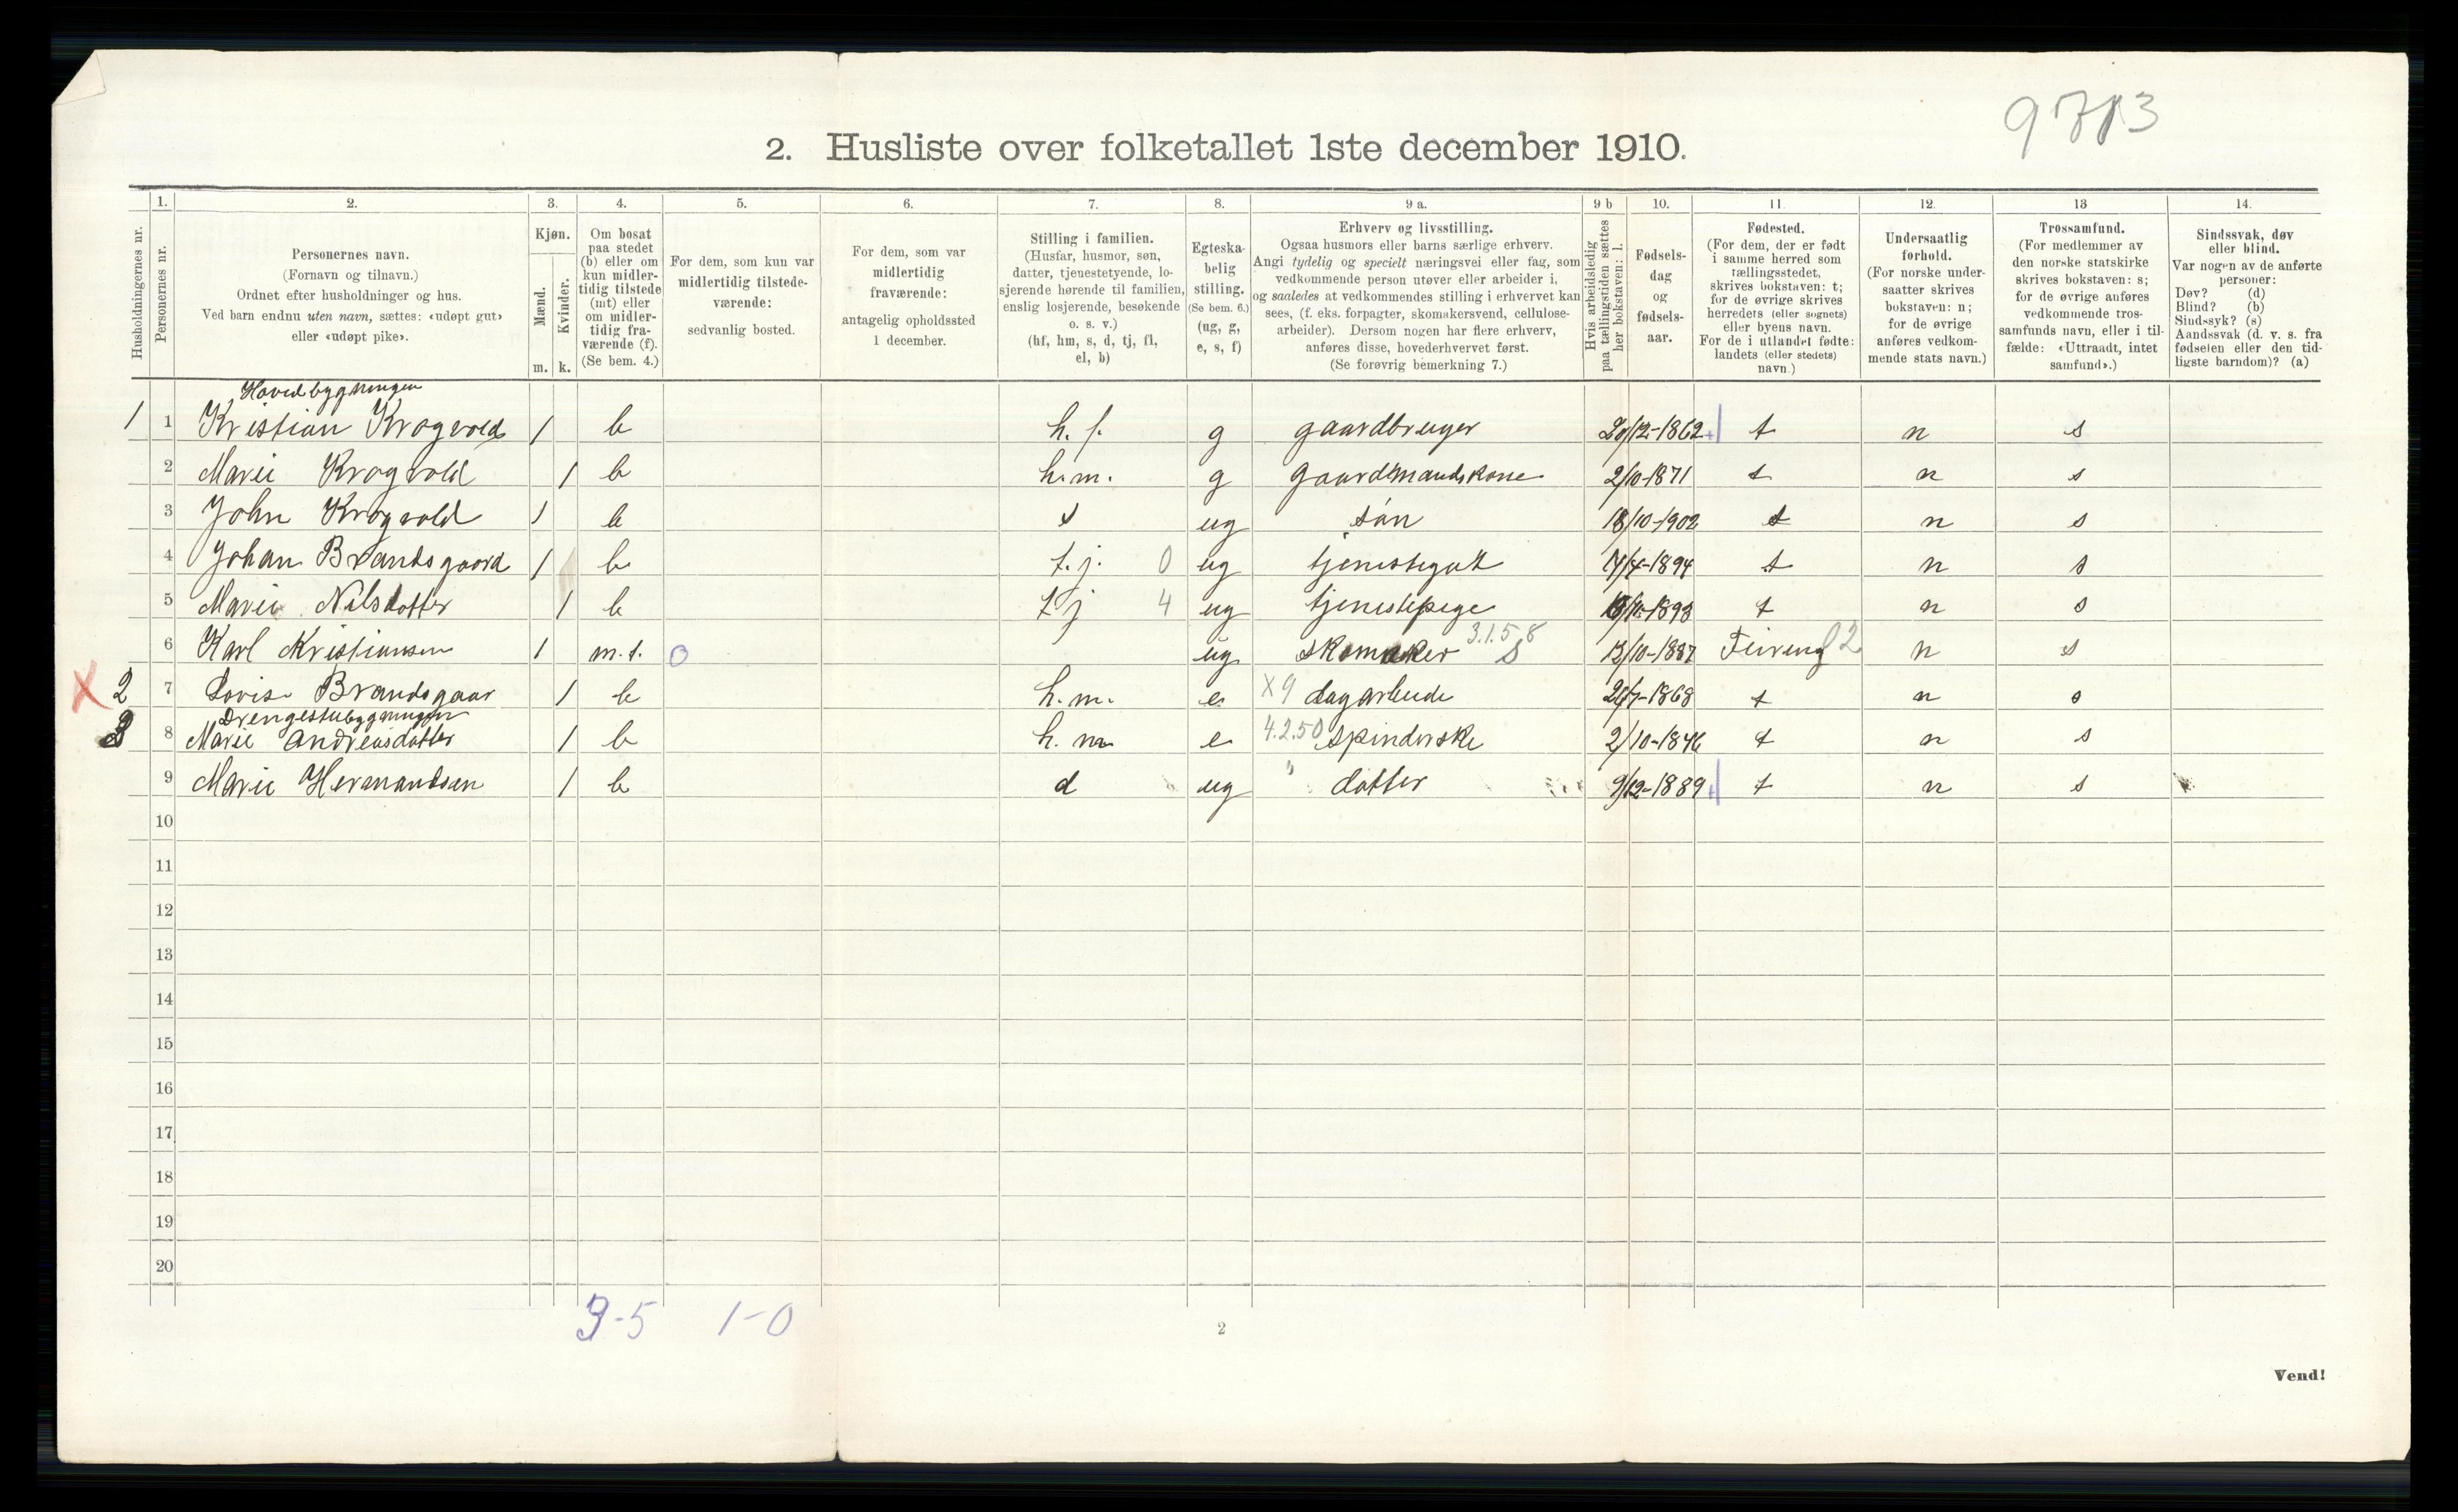 9713
2. Husliste over folketallet 1ste december 1910.
Husholdningernes nr.
1.
Personernes nr.
2.
Personernes navn.
(Fornavn og tilnavn.)
Ordnet efter husholdninger og hus.
Ved barn endnu uten navn, sættes: «udøpt gut»
eller «udøpt pike».
3.
Kjøn.
Mænd.
m.
Kvinder.
k.
4.
Om bosat
paa stedet
(b) eller om
kun midler-
tidig tilstede
(mt) eller
om midler-
tidig fra-
værende (f).
(Se bem. 4.)
5.
For dem, som kun var
midlertidig tilstede-
værende:
sedvanlig bosted.
6.
For dem, som var
midlertidig
fraværende:
antagelig opholdssted
1 december.
7.
Stilling i familien.
(Husfar, husmor, søn,
datter, tjenestetyende, lo-
sjerende hørende til familien,
enslig losjerende, besøkende
o. s. v.)
(hf, hm, s, d, tj, fl,
el, b)
8.
Egteska-
belig
stilling.
(Se bem. 6.)
(ug, g,
e, s, f)
9 a.
Erhverv og livsstilling.
Ogsaa husmors eller barns særlige erhverv.
Angi tydelig og specielt næringsvei eller fag, som
vedkommende person utøver eller arbeider i,
og saaledes at vedkommendes stilling i erhvervet kan
sees, (f. eks. forpagter, skomakersvend, cellulose-
arbeider). Dersom nogen har flere erhverv,
anføres disse, hovederhvervet først.
(Se forøvrig bemerkning 7.)
9 b
Hvis arbeidsledig
paa tællingstiden sættes
her bokstaven: l.
10.
Fødsels-
dag
og
fødsels-
aar.
11.
Fødested.
(For dem, der er født
i samme herred som
tællingsstedet,
skrives bokstaven: t;
for de øvrige skrives
herredets (eller sognets)
eller byens navn.
For de i utlandet fødte:
landets (eller stedets)
navn.)
12.
Undersaatlig
forhold.
(For norske under-
saatter skrives
bokstaven: n;
for de øvrige
anføres vedkom-
mende stats navn.)
13
Trossamfund.
(For medlemmer av
den norske statskirke
skrives bokstaven: s;
for de øvrige anføres
vedkommende tros-
samfunds navn, eller i til-
fælde: «Uttraadt, intet
samfund».)
14.
Sindssvak, døv
eller blind.
Var nogen av de anførte
personer:
Døv? (d)
Blind? (b)
Sindssyk? (s)
Aandssvak (d. v. s. fra
fødselen eller den tid-
ligste barndom)? (a)
Hovedbygningen
1 1 Kristian Krogvold 1 b h. f. g gaardbruger 20/12-1862 t n s
2 Marie Krogvold 1 b h.m. g gaardmandskone 2/10-1871 t n s
3 John Krogvold 1 b s ug søn 18/10-1902 t n s
4 Johan Brandsgaard 1 b t.j. 0 ug tjenestegut 14/4-1894 t n s
5 Marie Nilsdotter 1 b t j 4 ug tjenestepige 1893 t n s
6 Karl Kristiansen 1 m.t. 0 ug skomaker 3.1.5 8 s 13/10-1887 Feiring 02 n s
X 2 7 Lovise Brandsgaar 1 b h.m. e X9 dagarbeide 26/7-1868 t n s
Drengestubygningen
3 8 Marie Andreasdatter 1 b h. m e 4.2.50 spinderske 2/10-1846 t n s
9 Marie Hermandsen 1 b d ug " datter 9/12-1889 t n s
10
11
12
13
14
15
16
17
18
19
20
3-5 1-0
2
Vend!